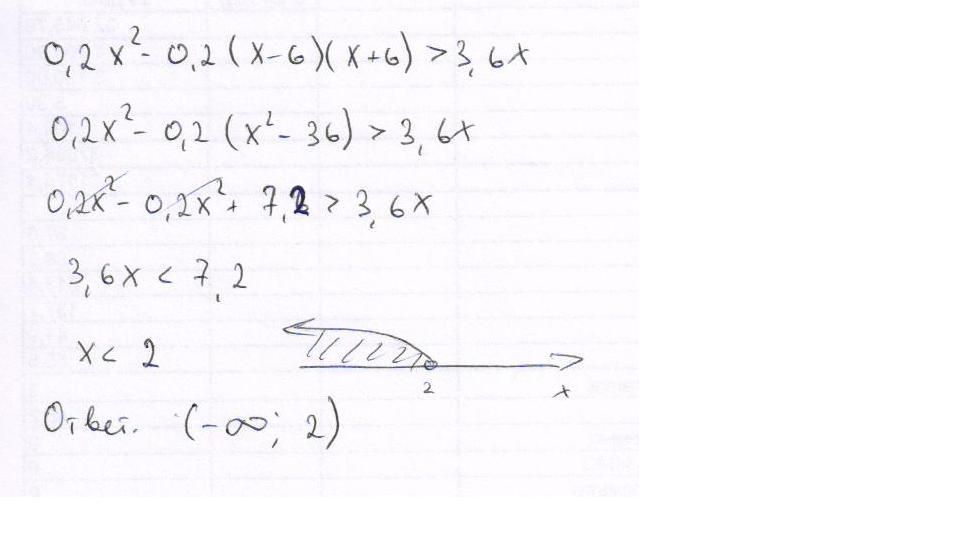 0,2x² - 0,2(x-6)(x+6) > 3,6x
0,2x² - 0,2(x² - 36) > 3,6x
0,2x² - 0,2x² + 7,2 > 3,6x
3,6x < 7,2
x < 2
2
x
Ответ. (-∞; 2)